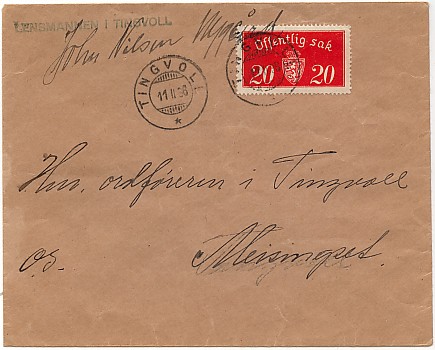 LENSMANNEN I TINGVOLL
John Nilsen
Offentlig sak
20 20
TINGVOLL
11 II 36
Hrr. ordføreren i Tingvoll
os. Meisingset.